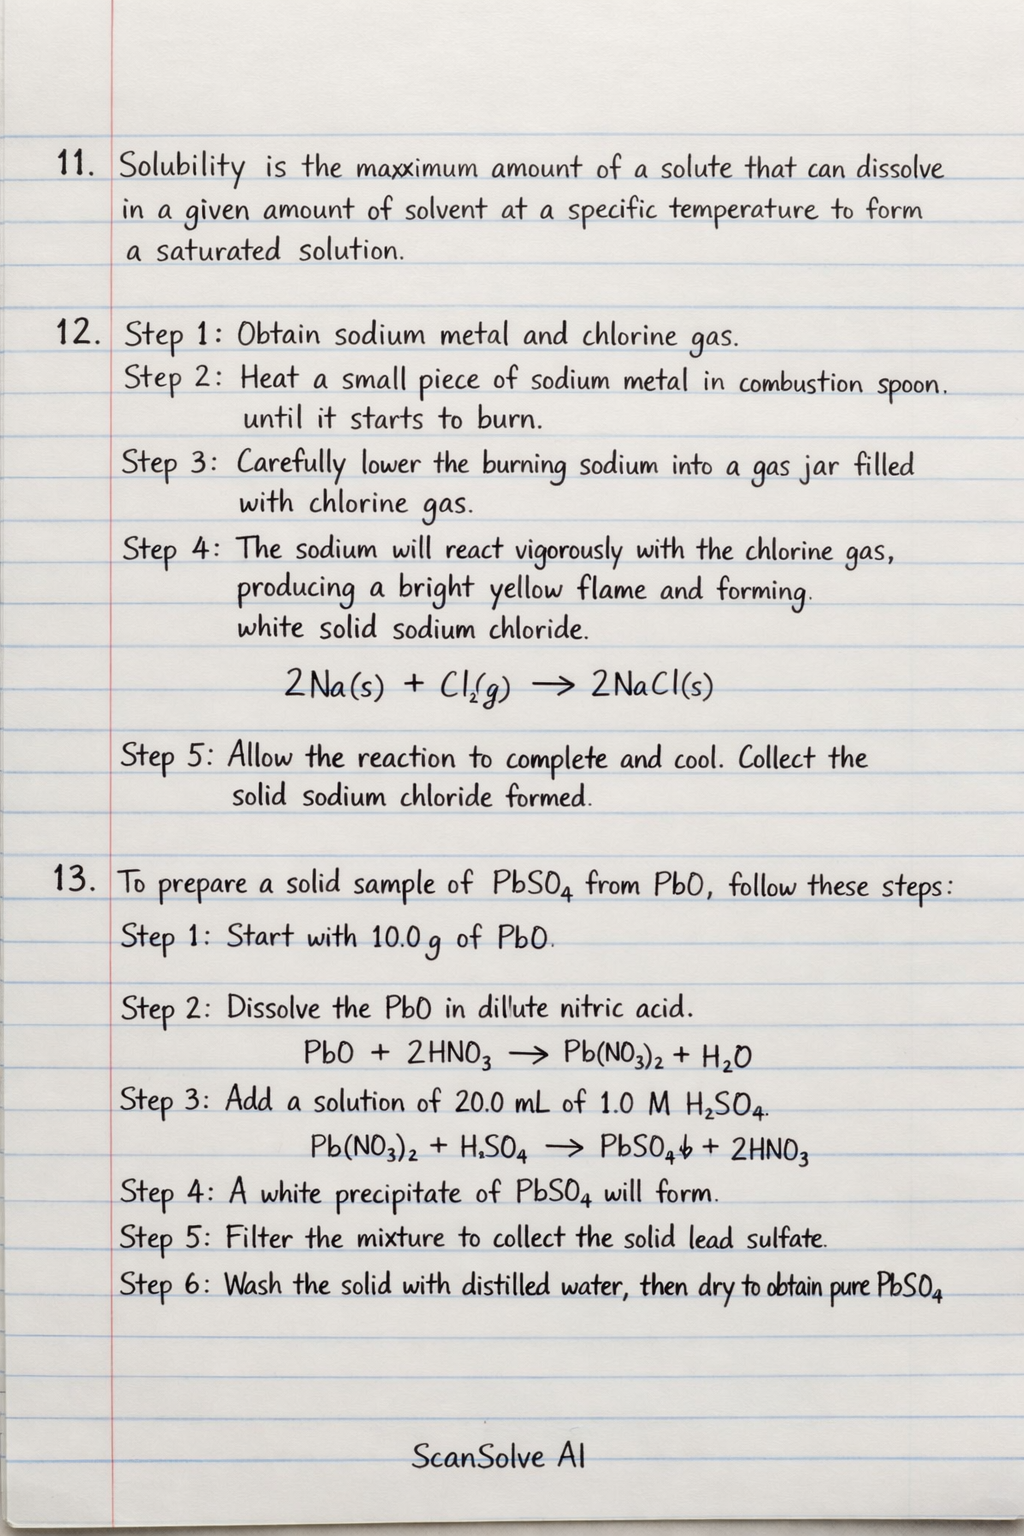 11. Solubility is the maxximum amount of a solute that can dissolve
in a given amount of solvent at a specific temperature to form
a saturated solution.
12. Step 1: Obtain sodium metal and chlorine gas.
Step 2: Heat a small piece of sodium metal in combustion spoon.
until it starts to burn.
Step 3: Carefully lower the burning sodium into a gas jar filled
with chlorine gas.
Step 4: The sodium will react vigorously with the chlorine gas,
producing a bright yellow flame and forming.
white solid sodium chloride.
2Na(s) + Cl₂(g) → 2NaCl(s)
Step 5: Allow the reaction to complete and cool. Collect the
solid sodium chloride formed.
13. To prepare a solid sample of PbSO₄ from PbO, follow these steps:
Step 1: Start with 10.0 g of PbO.
Step 2: Dissolve the PbO in dillute nitric acid.
PbO + 2HNO₃ → Pb(NO₃)₂ + H₂O
Step 3: Add a solution of 20.0 mL of 1.0 M H₂SO₄.
Pb(NO₃)₂ + H₂SO₄ → PbSO₄↓ + 2HNO₃
Step 4: A white precipitate of PbSO₄ will form.
Step 5: Filter the mixture to collect the solid lead sulfate.
Step 6: Wash the solid with distilled water, then dry to obtain pure PbSO₄
ScanSolve AI